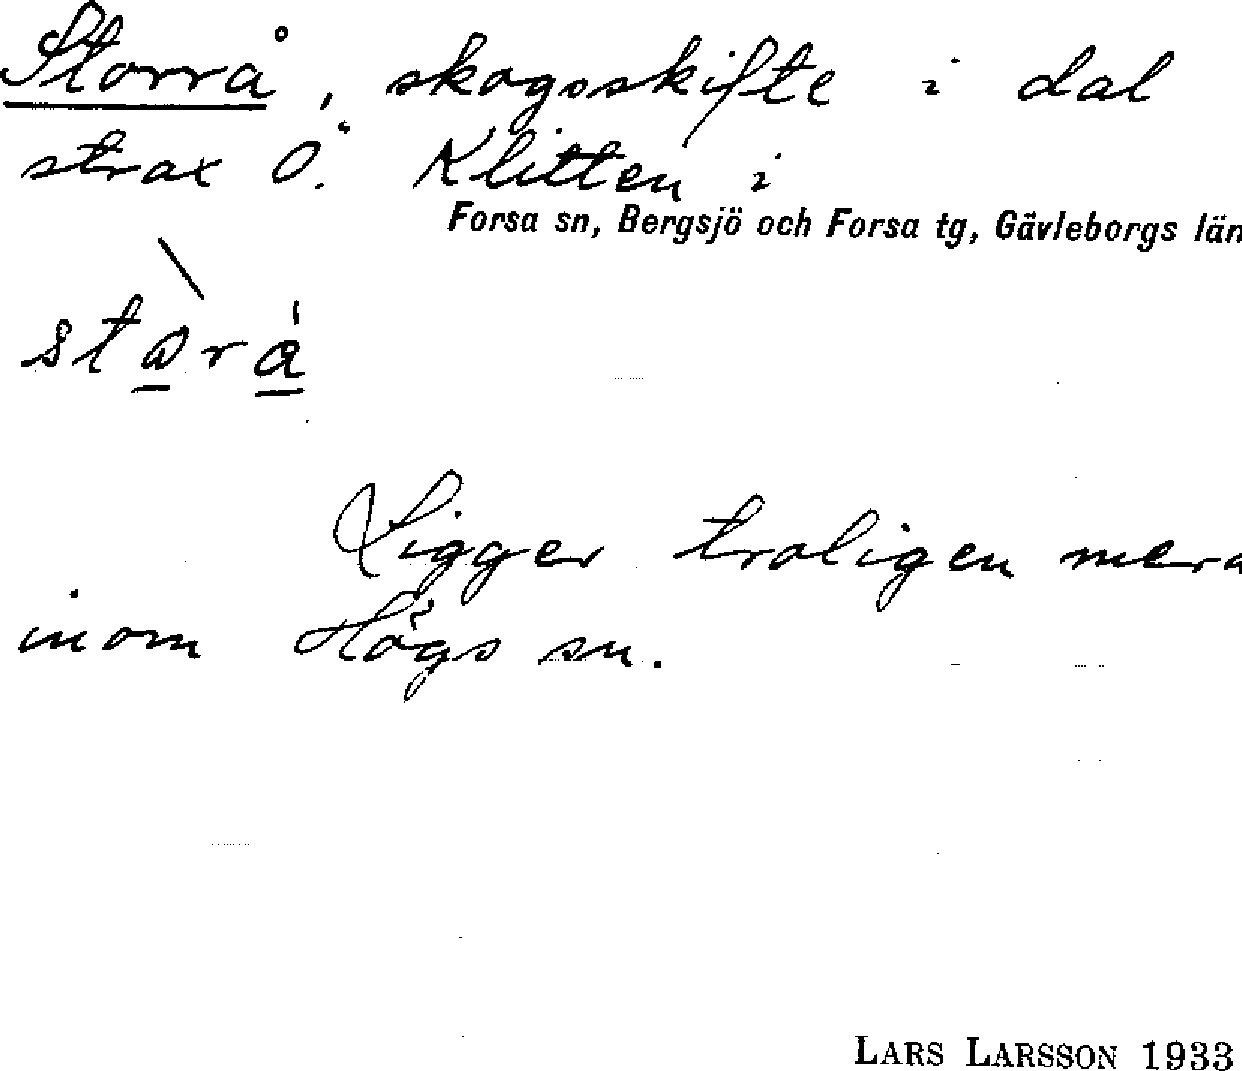 Storrå, skogsskifte i dal
strax Ö. Klitten i
Forsa sn, Bergsjö och Forsa tg, Gävleborgs län
Ligger troligen mera
inom Högs sn.
LARS LARSSON 1933